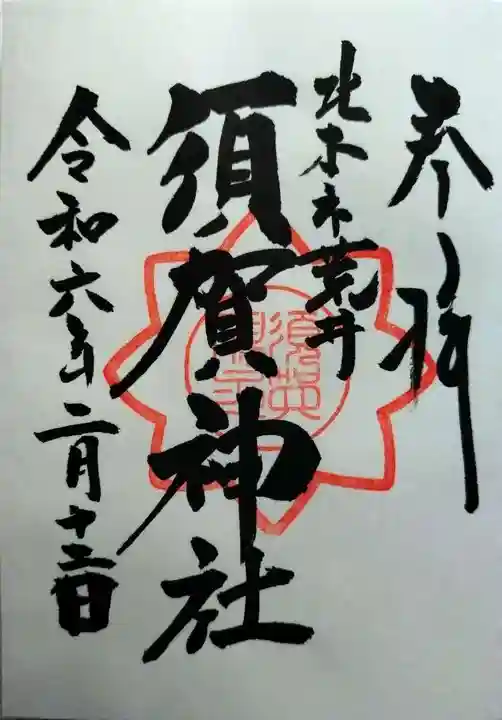 奉拝
北本市荒井
須賀神社
令和六年二月十二日